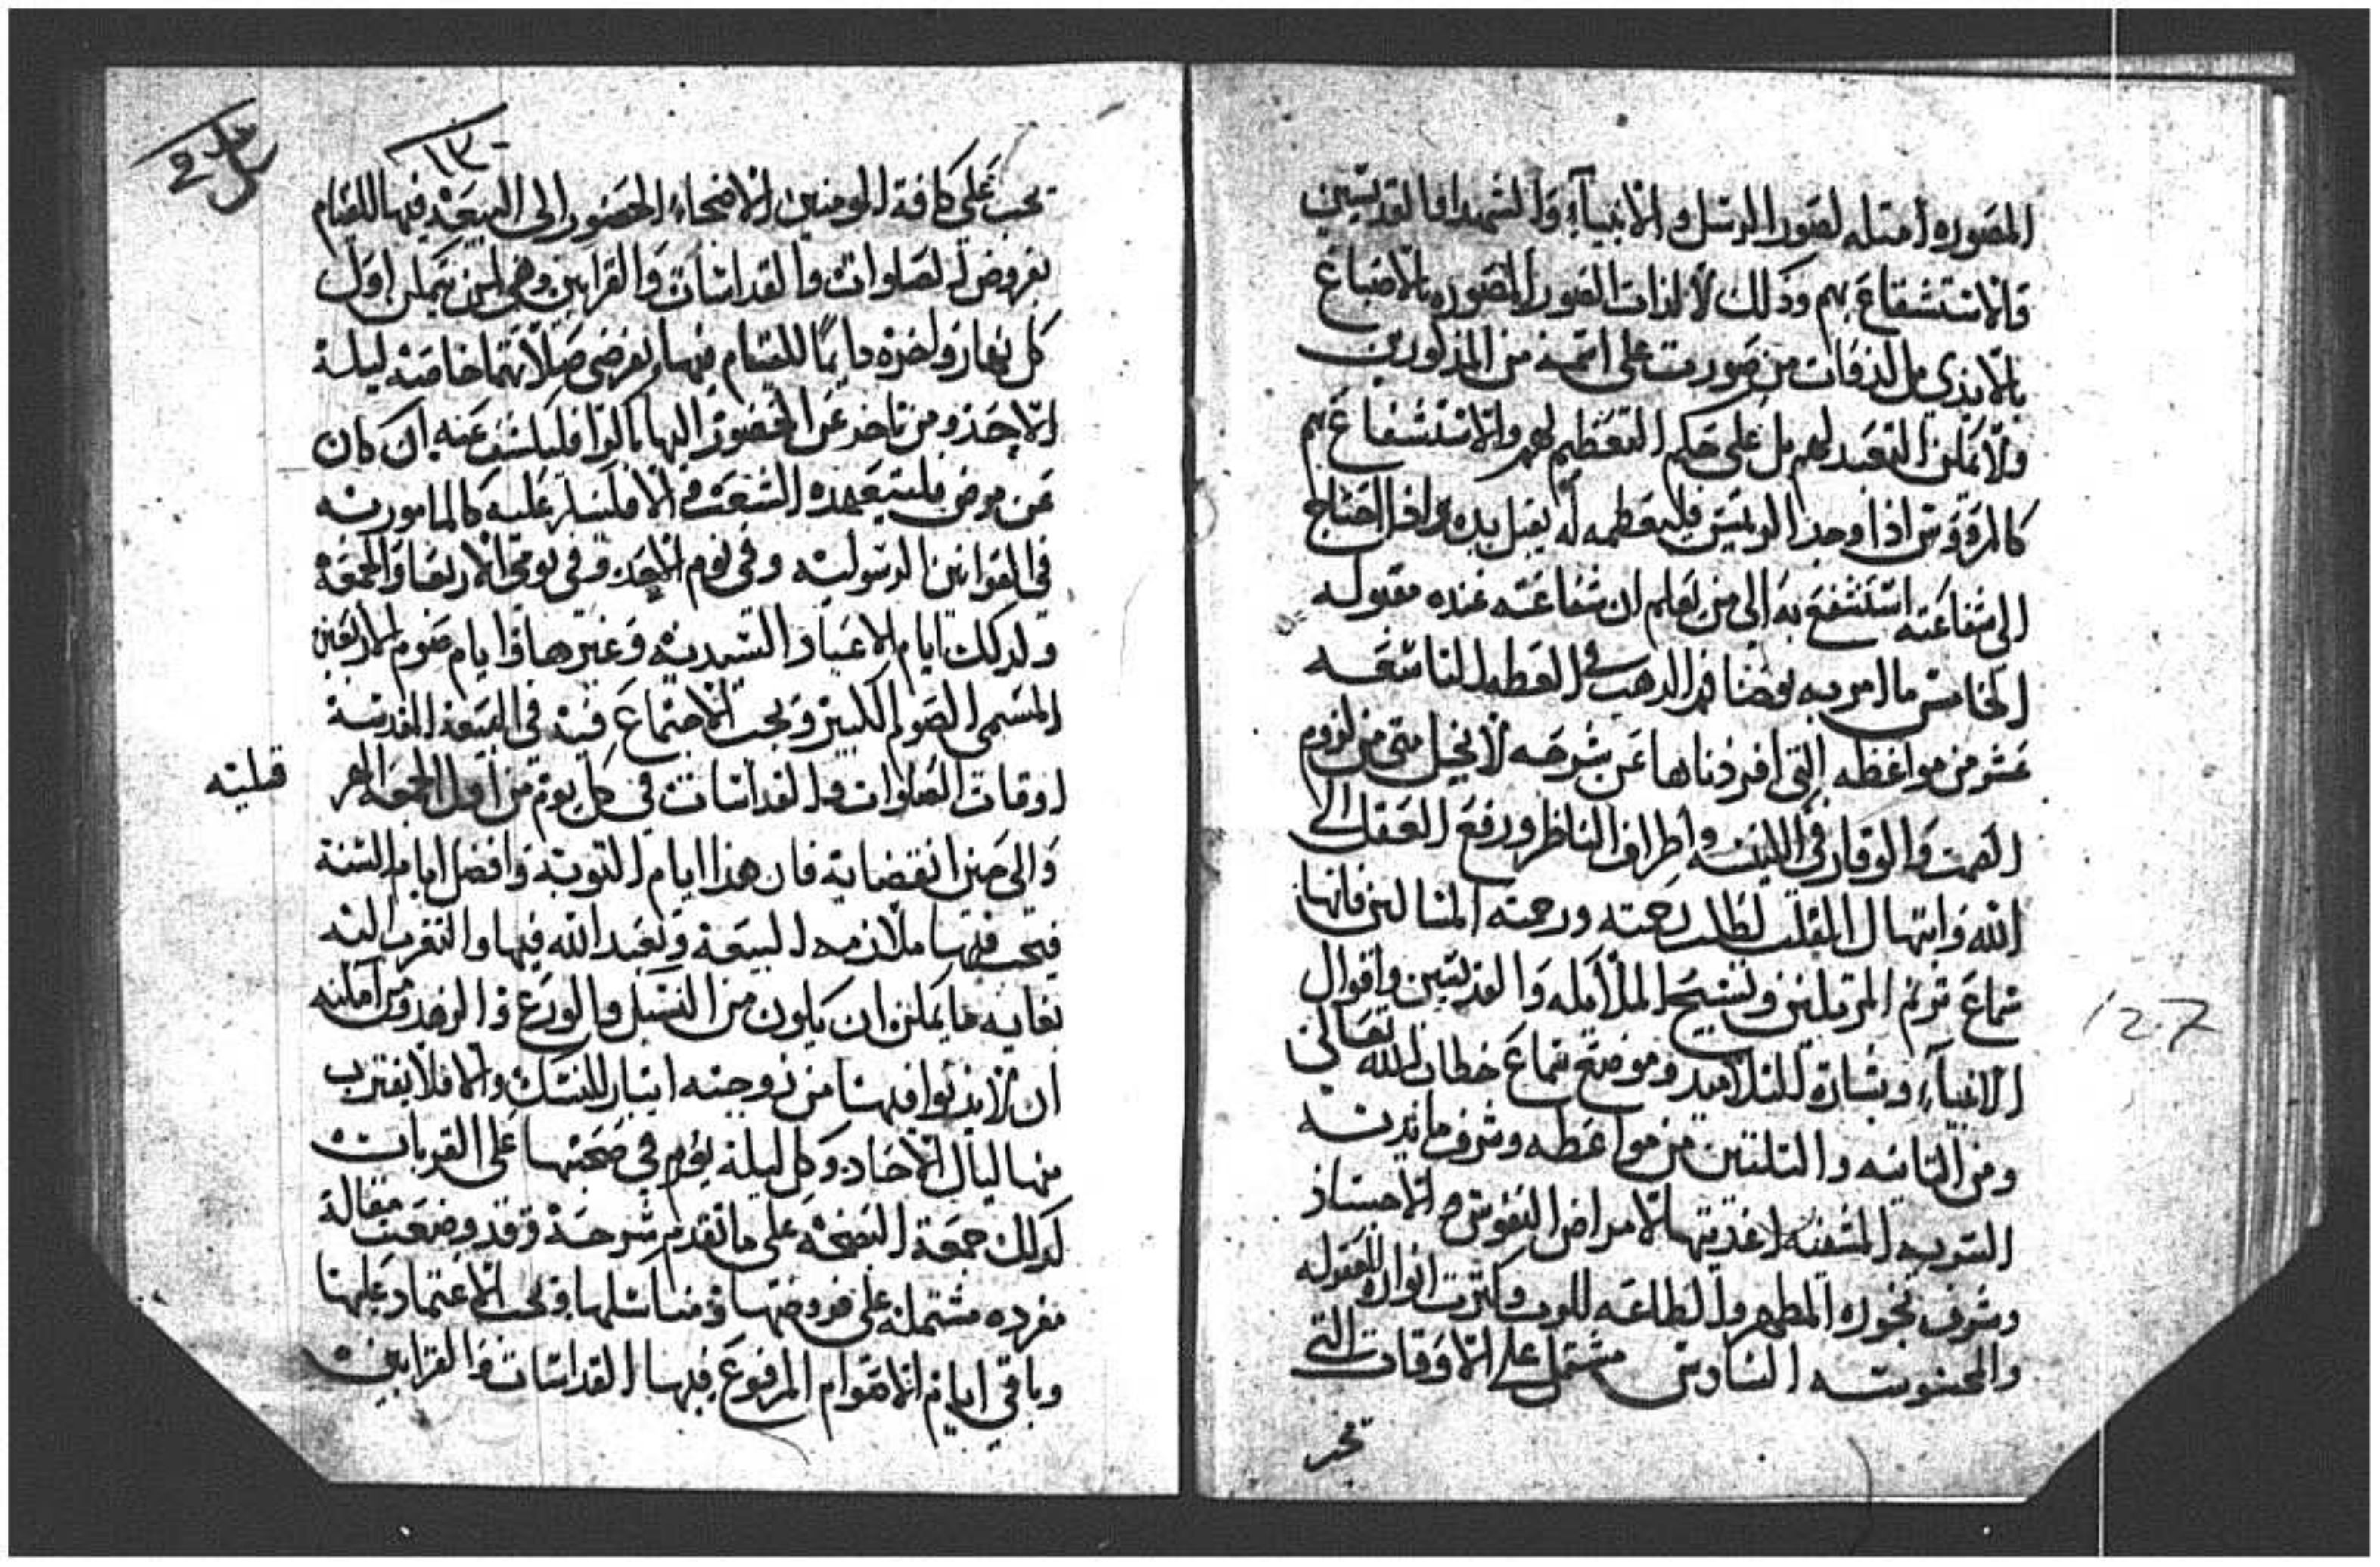 المصوره امتله لصور الرسل والانبياء والشهدا والقديسين
والاستشفاع بهم وذلك لا لذات الصور المصوره بالاصباغ
بالايدي بل لذوات من صورت على اسمه من المذكورين
ولا يمكن التعبد لهم بل على حكم التعظيم لهم والاستشفاع بهم
كالمرووس اذا وجد الريس فليعظمه له يقبل يده واذا احتاج
الى شفاعته استشفع به الى من يعلم ان شفاعته عنده مقبوله
الخامس ما امر به يوحنا فم الدهب في العظه التاسعه
عشر من مواعظه التي افردناها عن شرحه لانجيل متى من لزوم
الصمت والوقار في البيعه واطراق الناظر ورفع العقل الى
الله وابتهال القلب لطلب رحمته ورحمته المساكين فانها
سماع ترنم المرتلين وتسبيح الملايكه والقديسين واقوال
الانبياء وبشارة التلاميد وموضع سماع خطاب الله تعالى
ومن التانيه والتلتين من مواعظه وشرف مايدته
السريه المشفيه اغديتها لامراض النفوس والاجساد
وشرف بخوره المطهر والطاعه للرب وكترت انواره المعقوله
والمحسوسه السادس مشتمل على الاوقات التي
تجب
127
١٣
تجب على كافة المومنين الاصحاء الحضور الى البيعه فيها للقيام
بفروض الصلوات والقداسات والقرابين وهي لمن يمكن اول
كل نهار واخره دايما للقيام فيها بفرضي صلاتهما خاصة ليلة
الاحد ومن تاخر عن الحضور اليها بالرا فليكشف عنه ان كان
عن مرض فليتعهده الشعب والا فلينكر عليه كالمامور به
في القوانين الرسوليه وفي يوم الاحد وفي يومي الاربعا والجمعه
وكدلك ايام الاعياد السيديه وغيرها وايام صوم الاربعين
المسمى الصوم الكبير ويجب الاجتماع فيه في البيعه المقدسة
اوقات الصلوات والقداسات في كل يوم من اول الجمعه
والى حين انقضايه فان هذا ايام التوبة وافضل ايام السنة
فيجب فيها ملازمه البيعة وتعبد الله فيها والتقرب اليه
بغايه ما يمكن ان يكون من النسك والورع والزهد ومن امكنه
ان لا يدنوا فيها من زوجته ايتار للنسك والا فلا يقترب
منها ليال الاحاد وكل ليلة يعزم في صبحتها على القربان
كدلك جمعة البصخه على ما تقدم شرحه وقد وضعت مقالة
مفرده مشتمله على فروضها ومناسكها ويجب الاعتماد عليها
وباقي ايام الاصوام المرفوع فيها القداسات والقرابين